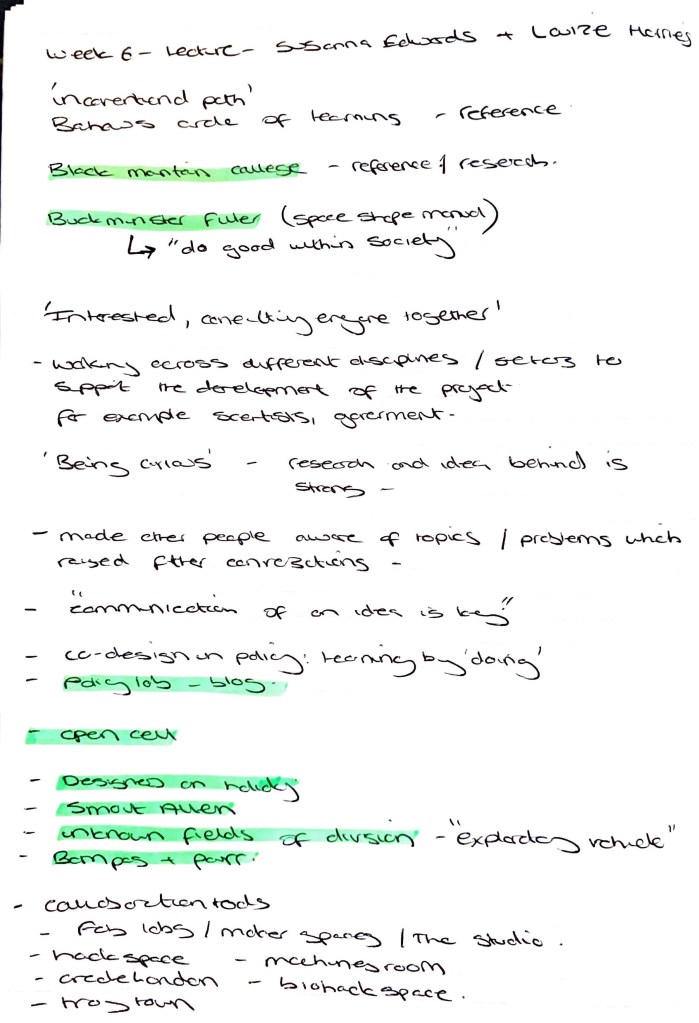 Week 6 - Lecture - Susanna Edwards + Louize Harries
path'
circle of learning - reference
Black mantain collage - reference & research.
Buckminster Fuller (space shape manual)
↳ "do good within society"
'Interested, conecting everyone together'
- working across different discipines / sectors to
support the development of the project
for example scientists, goverment -
'Being curious' - research and idea behind is
strong -
- made other people aware of topics / problems which
raised further conversations -
- "communication of an idea is key"
- co-design in policy: learning by 'doing'
- policy lab - blog.
- open cell
- Designed on holiday
- Smout Allen
- unknown fields of divison - "exploratory vehicle"
- Bompas + parr.
- collaboration tools
- Fab labs / maker spaces / The studio.
- hackspace - machinesroom
- create London - biohackspace.
- troy town